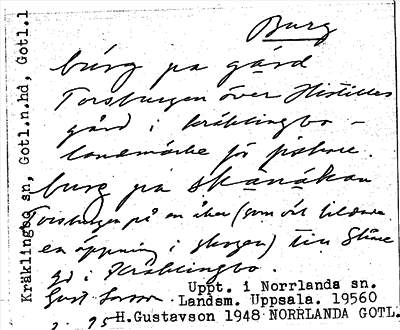 Burg
Kräklingbo sn, Gotl.n.hd, Gotl.l
búrg pa gård
Torsburgen över Histilles
gård i Kräklingbo –
landmärke för fiskare.
burg på skänåkan
Torsburgen på en åker (som
en öppning i skogen) till
gd i Kräklingbo.
Gust Larsson
Uppt. i Norrlanda sn.
Landsm. Uppsala. 19560
H.Gustavson 1948 NORRLANDA GOTL.